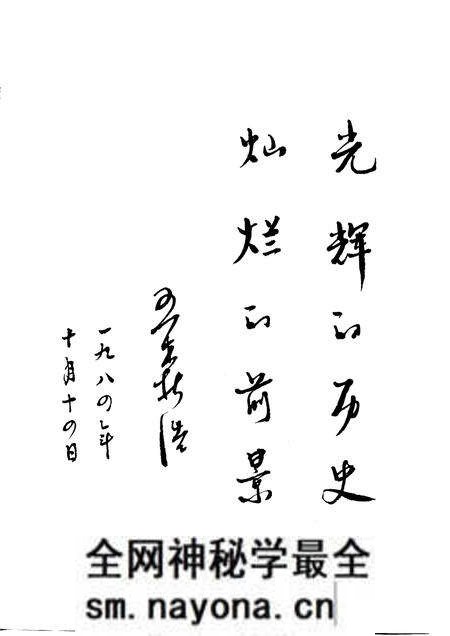 光辉的历史
灿烂的前景
一九八四年
十月十四日
全网神秘学最全
sm.nayona.cn